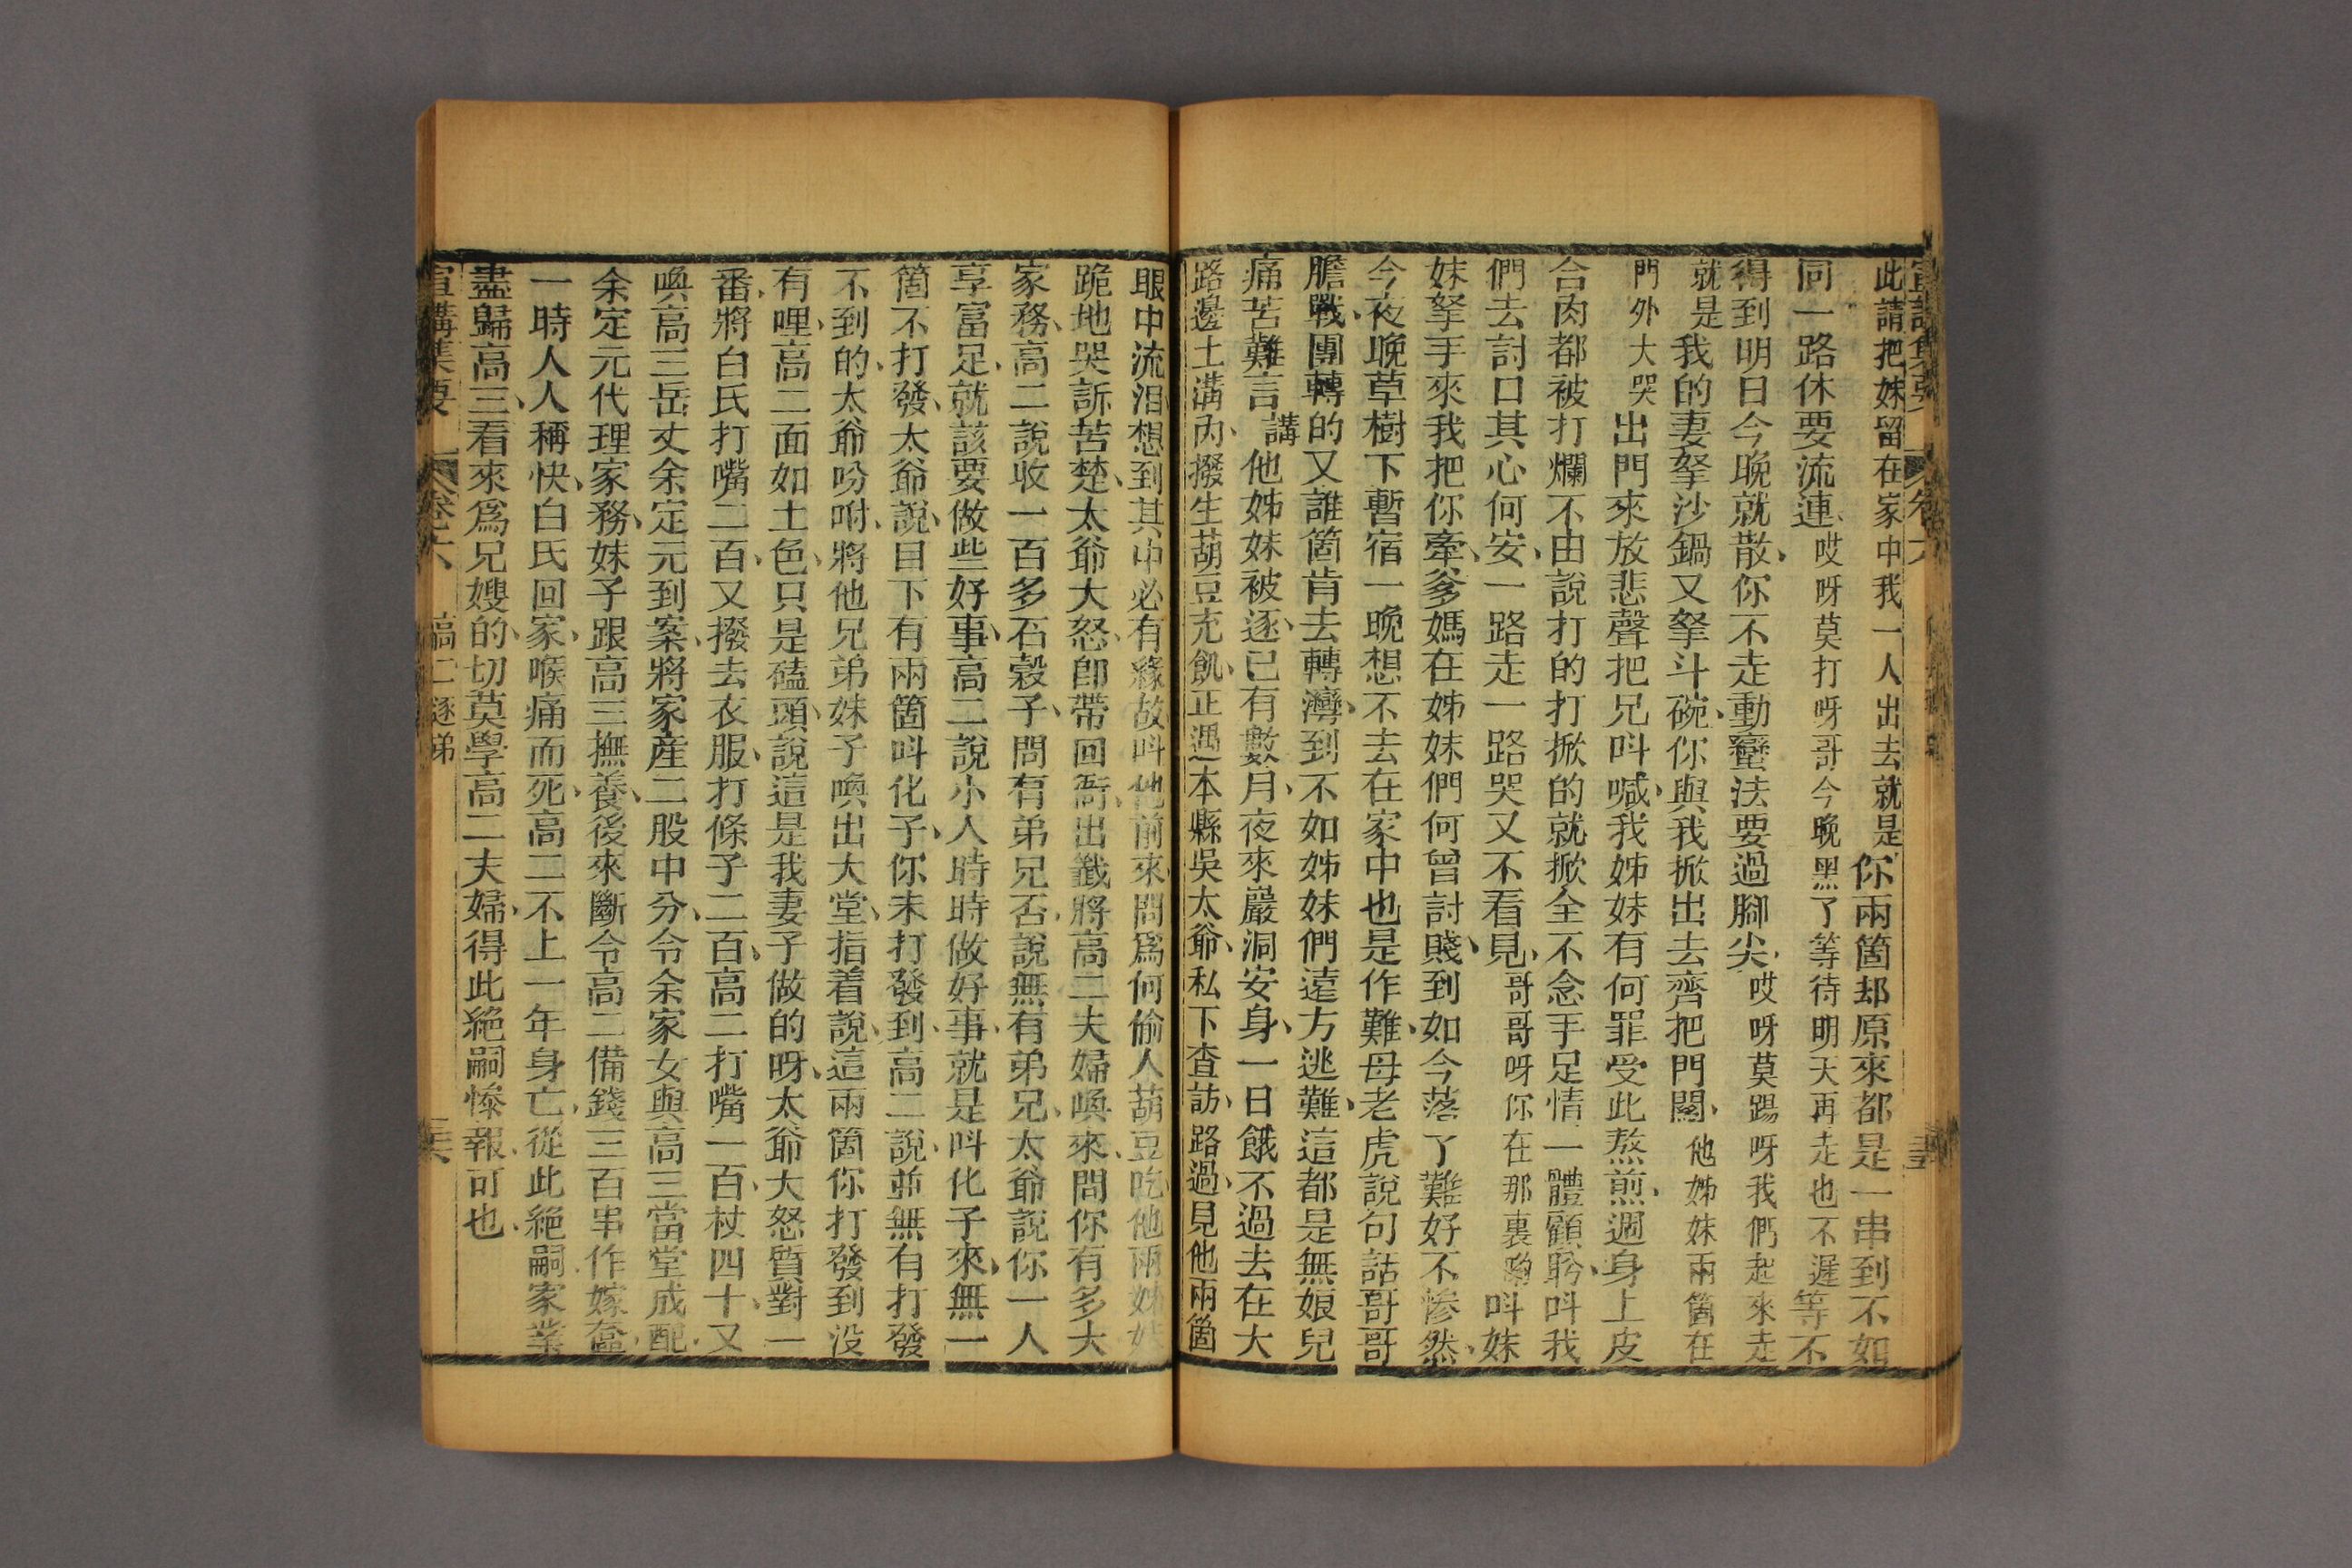 宣講集要 卷六
此請把妹留在家中我一人出去就是你兩箇却原來都是一串到不如
同一路休要流連哎呀莫打呀哥今晚黑了等待明天再走也不遲等不
得到明日今晚就散你不走動蠻法要過腳尖哎呀莫踢呀我們起來走
就是我的妻拏沙鍋又拏斗碗你與我掀出去齊把門關他姊妹兩箇在
門外大哭出門來放悲聲把兄呌喊我姊妹有何罪受此熬煎週身上皮
合肉都被打爛不由說打的打掀的就掀全不念手足情一體顧盼呌我
們去討口其心何安一路走一路哭又不看見哥哥呀你在那裏喲呌妹
妹拏手來我把你牽爹媽在姊妹們何曾討賤到如今落了難好不慘然
今夜晚草樹下暫宿一晚想不去在家中也是作難母老虎說句話哥哥
膽戰團轉的又誰箇肯去轉灣到不如姊妹們遠方逃難這都是無娘兒
痛苦難言講他姊妹被逐已有數月夜來巖洞安身一日餓不過去在大
路邊土溝內撥生葫豆充飢正遇本縣吳太爺私下查訪路過見他兩箇
眼中流泪想到其中必有緣故呌他前來問爲何偷人葫豆吃他兩姊妹
跪地哭訴苦楚太爺大怒卽帶回衙出籤將高二夫婦喚來問你有多大
家務高二說收一百多石穀子問有弟兄否說無有弟兄太爺說你一人
享富足就該要做些好事高二說小人時時做好事就是呌化子來無一
箇不打發太爺說目下有兩箇呌化子你未打發到高二說並無有打發
不到的太爺吩咐將他兄弟妹子喚出大堂指着說這兩箇你打發到没
有哩高二面如土色只是磕頭說這是我妻子做的呀太爺大怒質對一
番將白氏打嘴二百又撥去衣服打條子二百高二打嘴一百杖四十又
喚高三岳丈余定元到案將家產二股中分令余家女與高三當堂成配
余定元代理家務妹子跟高三撫養後來斷令高二備錢三百串作嫁奩
一時人人稱快白氏回家喉痛而死高二不上一年身亡從此絕嗣家業
盡歸高三看來爲兄嫂的切莫學高二夫婦得此絕嗣慘報可也
宣講集要 卷六 高二逐弟